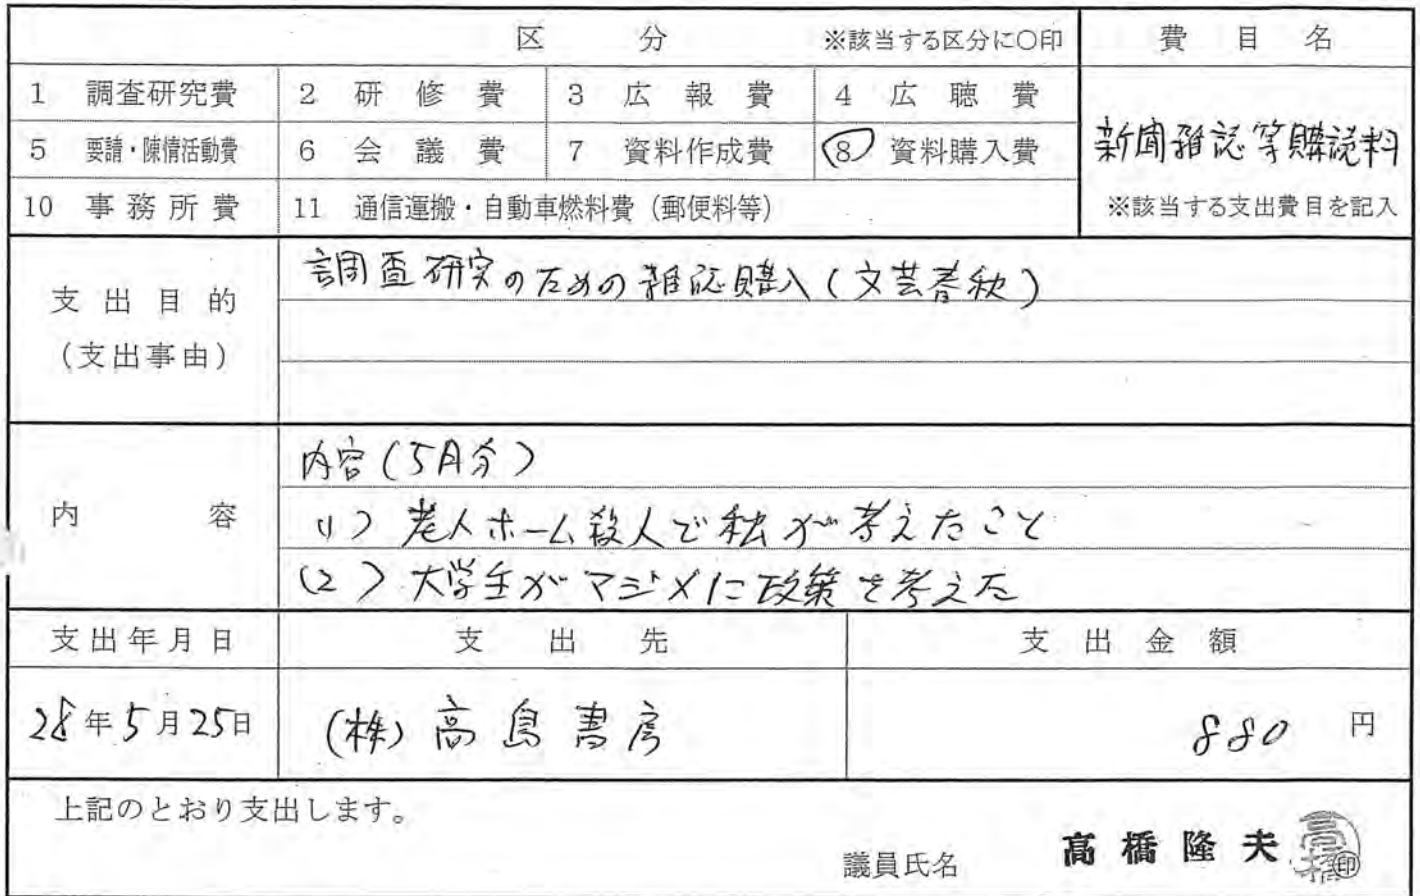 区 分 ※該当する区分に○印 費 目 名
1 調査研究費 2 研 修 費 3 広 報 費 4 広 聴 費
5 要請・陳情活動費 6 会 議 費 7 資料作成費 8 資料購入費
新聞雑誌等購読料
10 事 務 所 費 11 通信運搬・自動車燃料費（郵便料等）
※該当する支出費目を記入
支 出 目 的
（支出事由）
調査研究のための雑誌購入(文芸春秋)
内 容
内容(5月分)
(1) 老人ホーム殺人で私が考えたこと
(2) 大学生がマジメに政策を考えた
支出年月日 支 出 先 支 出 金 額
28年5月25日 (株)高島書房 880 円
上記のとおり支出します。
議員氏名 髙橋隆夫 印
高橋